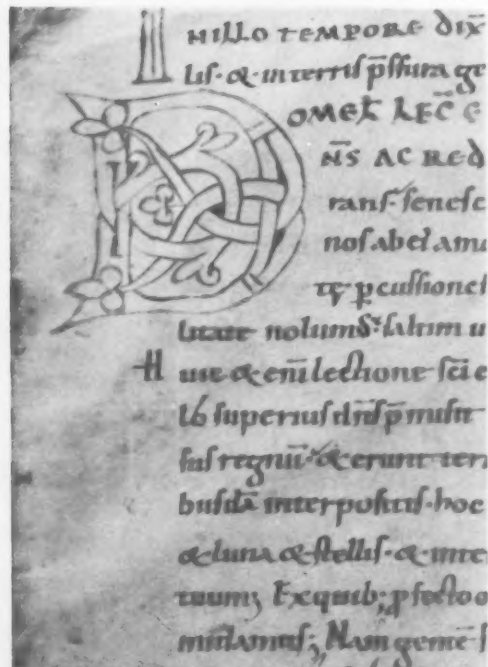 IN ILLO TEMPORE DIX̄
lis· & interris p̄ssura ge
DOMEĪ LEC̄ E
N̄S AC RED
rans· senesc
nos abei amo
tę p cussionel
litate nolum᷒· saltim u
iuse & eni lectione sc̄i e
superius dn̄s p̄misit
sus regnū· & erunt terr
busdā interpositis· hoc
& luna & stellis· & inte
tuum; Exquib; pfecto o
mulamus; Nam gentē s